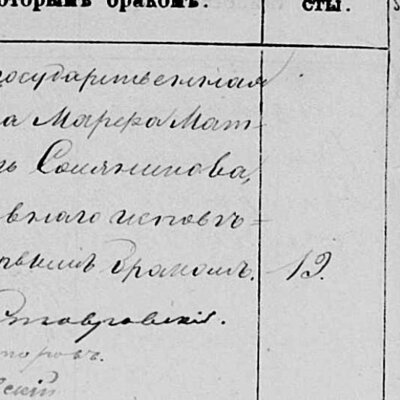 которымъ бракомъ.
сты.
государственная
а Марѳа Мат-
ь Солянинова,
внаго исповѣ-
рвымъ бракомъ. 19.
Ставровскій.
торовъ.
вскій